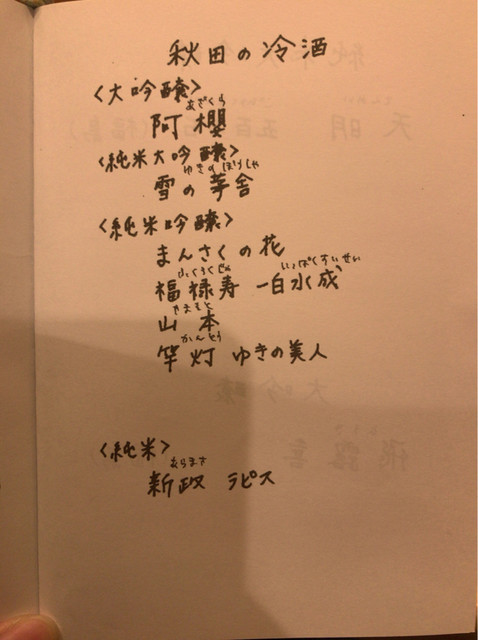 秋田の冷酒
<大吟醸>
あざくら
阿櫻
<純米大吟醸>
ゆきのぼうしゃ
雪の茅舎
<純米吟醸>
まんさくの花
ふくろくじゅ いっぱくすいせい
福禄寿 一白水成
やまもと
山本
かんとう
竿灯 ゆきの美人
<純米>
あらまさ
新政 ラピス